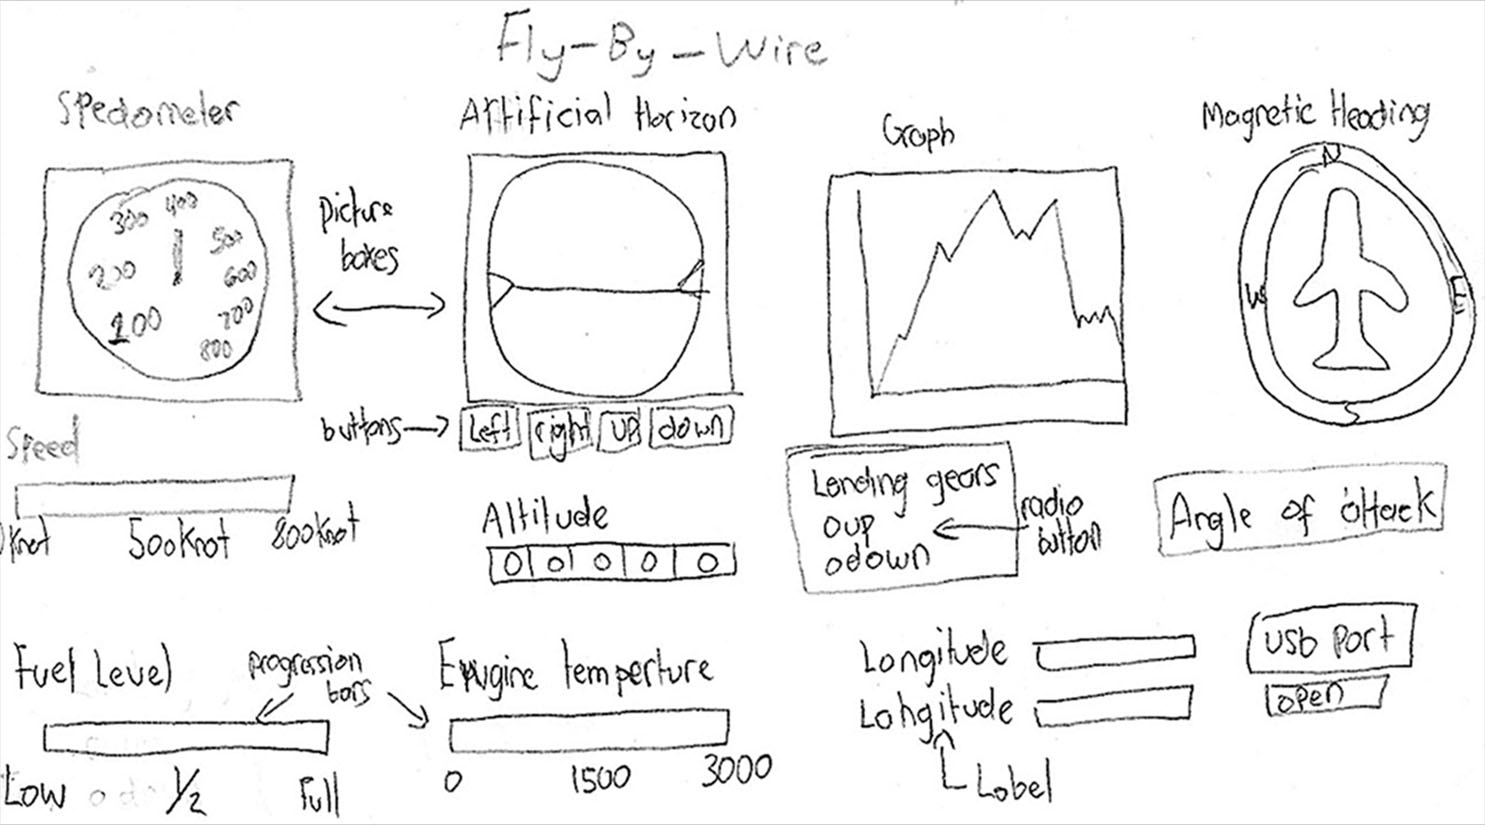 Fly-By-Wire
Spedometer
Artificial Horizon
Graph
Magnetic Heading
300 400
500
200
600
100
700
800
picture
boxes
N
W
E
S
buttons
Left right up down
Speed
500Knot 800Knot
Altitude
0 0 0 0 0
Landing gears
o up
o down
radio
button
Angle of attack
Fuel Level
progression
bars
Low 1/2 Full
Engine temperture
0 1500 3000
Longitude
Lohgitude
Label
USb port
open